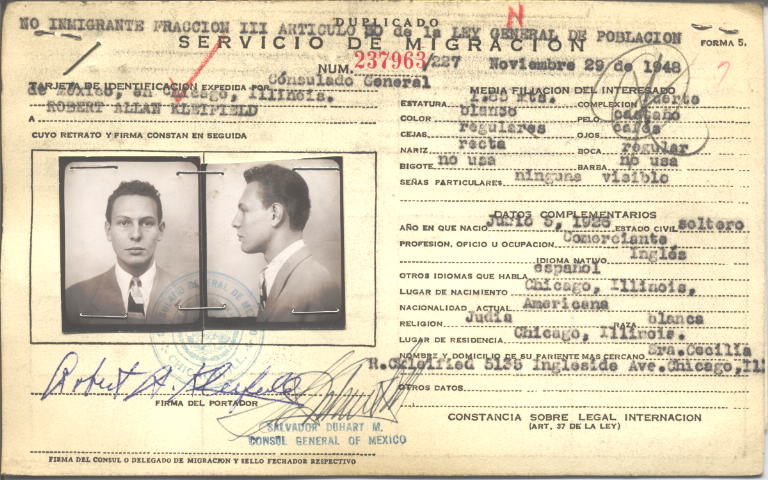 DUPLICADO
NO INMIGRANTE FRACCION III ARTICULO 50 de la LEY GENERAL DE POBLACION
N
SERVICIO DE MIGRACION
FORMA 5.
NUM. 237963/227
Noviembre 29 de 1948
TARJETA DE IDENTIFICACION EXPEDIDA POR Consulado General
de Mexico, en Chicago, Illinois.
A ROBERT ALLAN KLEIFIELD
CUYO RETRATO Y FIRMA CONSTAN EN SEGUIDA
Robert A. Kleifield
FIRMA DEL PORTADOR
SALVADOR DUHART M.
CONSUL GENERAL OF MEXICO
FIRMA DEL CONSUL O DELEGADO DE MIGRACION Y SELLO FECHADOR RESPECTIVO
MEDIA FILIACION DEL INTERESADO
ESTATURA mts. COMPLEXION fuerte
COLOR blanco PELO castaño
CEJAS regulares OJOS cafés
NARIZ recta BOCA regular
BIGOTE no usa BARBA no usa
SEÑAS PARTICULARES ninguna visible
DATOS COMPLEMENTARIOS
AÑO EN QUE NACIO 5, ESTADO CIVIL soltero
PROFESION, OFICIO U OCUPACION Comerciante
IDIOMA NATIVO Inglés
OTROS IDIOMAS QUE HABLA español
LUGAR DE NACIMIENTO Chicago, Illinois,
NACIONALIDAD ACTUAL Americana
RELIGION Judia RAZA blanca
LUGAR DE RESIDENCIA Chicago, Illinois.
NOMBRE Y DOMICILIO DE SU PARIENTE MAS CERCANO Sra.Cecilia
Ingleside Ave.Chicago,Ill
OTROS DATOS
CONSTANCIA SOBRE LEGAL INTERNACION
(ART. 37 DE LA LEY)